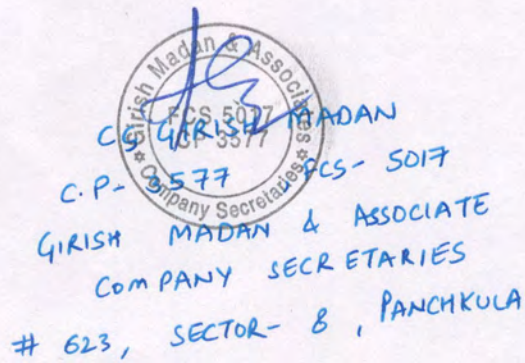 Girish Madan & Associates
FCS 5017
CP 3577
* Company Secretaries *
CS GIRISH MADAN
C.P- 3577, FCS- 5017
GIRISH MADAN & ASSOCIATE
COMPANY SECRETARIES
# 623, SECTOR- 8, PANCHKULA